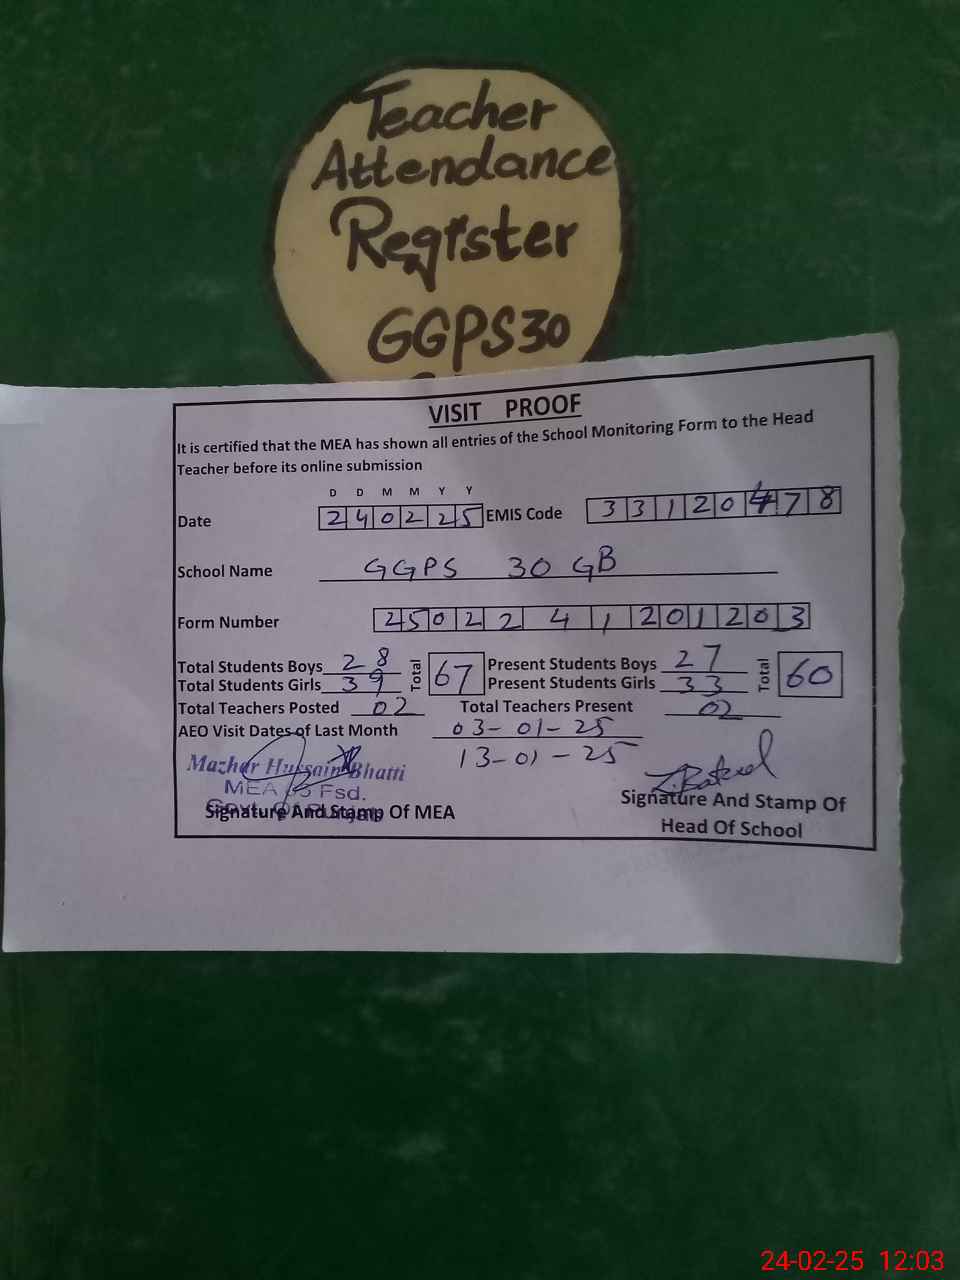 Teacher
Attendance
Register
GGPS 30
VISIT PROOF
It is certified that the MEA has shown all entries of the School Monitoring Form to the Head
Teacher before its online submission
D D M M Y Y
Date 240225 EMIS Code 33120478
School Name GGPS 30 GB
Form Number 2502241201203
Total Students Boys 28 Total 67 Present Students Boys 27 Total 60
Total Students Girls 39 Present Students Girls 33
Total Teachers Posted 02 Total Teachers Present 02
AEO Visit Dates of Last Month 03-01-25
13-01-25
Mazhar Hussain Bhatti
MEA Fsd.
Govt. Of Punjab
Signature And Stamp Of MEA
Signature And Stamp Of
Head Of School
24-02-25 12:03